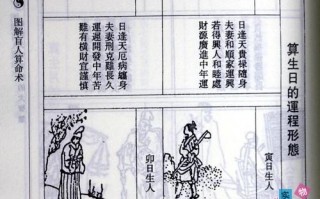 算生日的運程形態
日逢天貴祿隨身
夫妻和順家運興
若得興人和睦處
財源廣進中年運
寅日生人
日逢天厄病纏身
夫妻刑克難長久
運遲開發中年苦
雖有橫財宜謹慎
卯日生人
图解盲人算命术